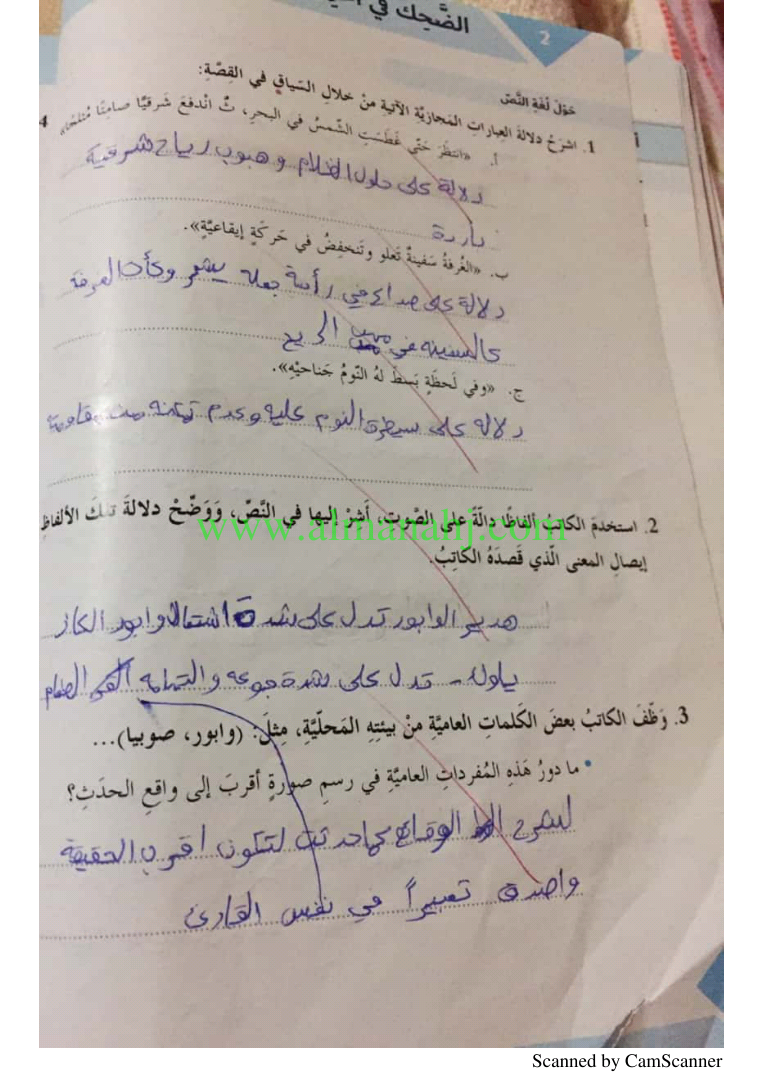 الضَّحِك في
2
حَوْلَ لُغَةِ النَّصّ
1. اشرَحْ دلالةَ العِباراتِ المَجازيَّةِ الآتيةِ منْ خلالِ السّياقِ في القِصَّةِ:
أ. «انتظَرَ حَتّى غَطَسَتِ الشّمسُ في البحرِ، ثُ انْدفعَ شَرقيًّا صامتًا مُثلجًا»
4
دلالة على حلول الظلام وهبوب رياح شرقية
باردة
ب. «الغُرفةُ سَفينةٌ تَعلو وتَنخفِضُ في حَركَةٍ إيقاعيَّةٍ».
دلالة على صداع في رأسه جعله يشعر وكأن الغرفة
كالسفينة في مهب الريح
ج. «وفي لَحظَةٍ بَسطَ لهُ النّومُ جَناحيْهِ».
دلالة على سيطرة النوم عليه وعدم تمكنه من مقاومة
2. استخدمَ الكاتبُ ألفاظًا دالّةً على الصَّوتِ، أَشِرْ إليها في النَّصِّ، وَوَضِّحْ دلالةَ تلكَ الألفاظِ
إيصالِ المعنى الَّذي قَصدَهُ الكاتِبُ.
www.almanahj.com
هدير الوابور تدل على شدة اشتعال وابور الكاز
يلوك - تدل على شدة جوعه والتهامه الطعام
3. وَظَّفَ الكاتبُ بعضَ الكَلماتِ العاميَّةِ منْ بيئتِهِ المَحلّيَّةِ، مِثلَ: (وابور، صوبيا)...
• ما دورُ هَذهِ المُفرداتِ العاميَّةِ في رسمِ صورةٍ أقربَ إلى واقعِ الحدَثِ؟
لشرح الوقائع كما حدثت لتكون أقرب الحقيقة
واصدق تعبيراً في نفس القارئ
Scanned by CamScanner